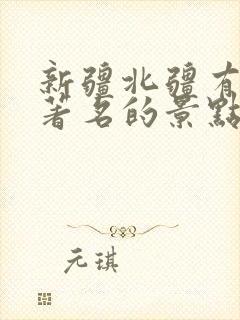 新疆北疆有
著名的景點
元琪